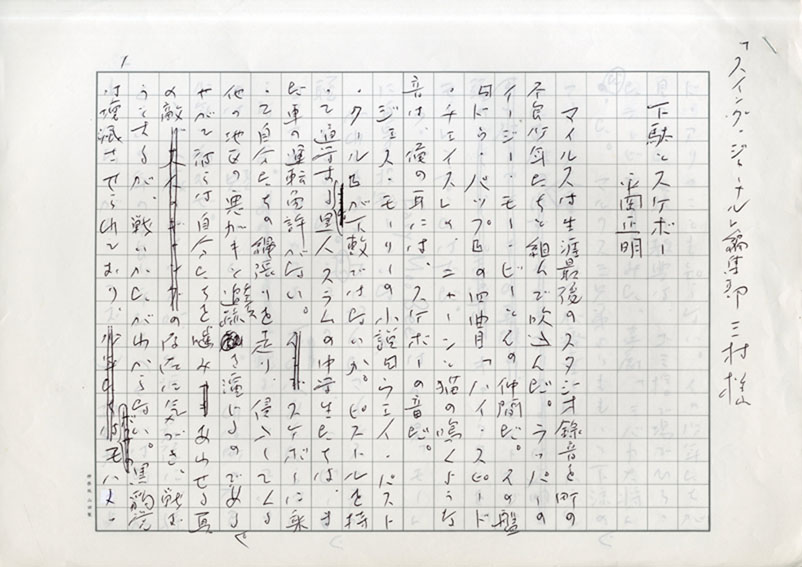 「スイング・ジャーナル」編集部 三村
1
下駄とスケボー
平岡正明
マイルスは生涯最後のスタジオ録音を町の
不良少年たちと組んで吹込んだ。ラッパーの
イージー・モー・ビーとその仲間だ。その盤
『ドゥ・バップ』の四曲目「ハイ・スピード
・チェイス」の、ニャーンと猫の鳴くような
音は、俺の耳には、スケボーの音だ。
ジェス・モーリーの小説『ウェイ・パスト
・クール』が下敷ではないか。ピストルを持
って通学する黒人スラムの中学生たちは、ま
だ車の運転免許がない。スケボーに乗
って自分たちの縄張りを走り、侵入してくる
他の地区の悪ガキと追跡を演じるのである
やがて彼らは自分たちを噛みあわせる真
の敵の存在に気がつき、戦お
うとするが、戦いかたがわからない。黒豹党
は壊滅させられており、